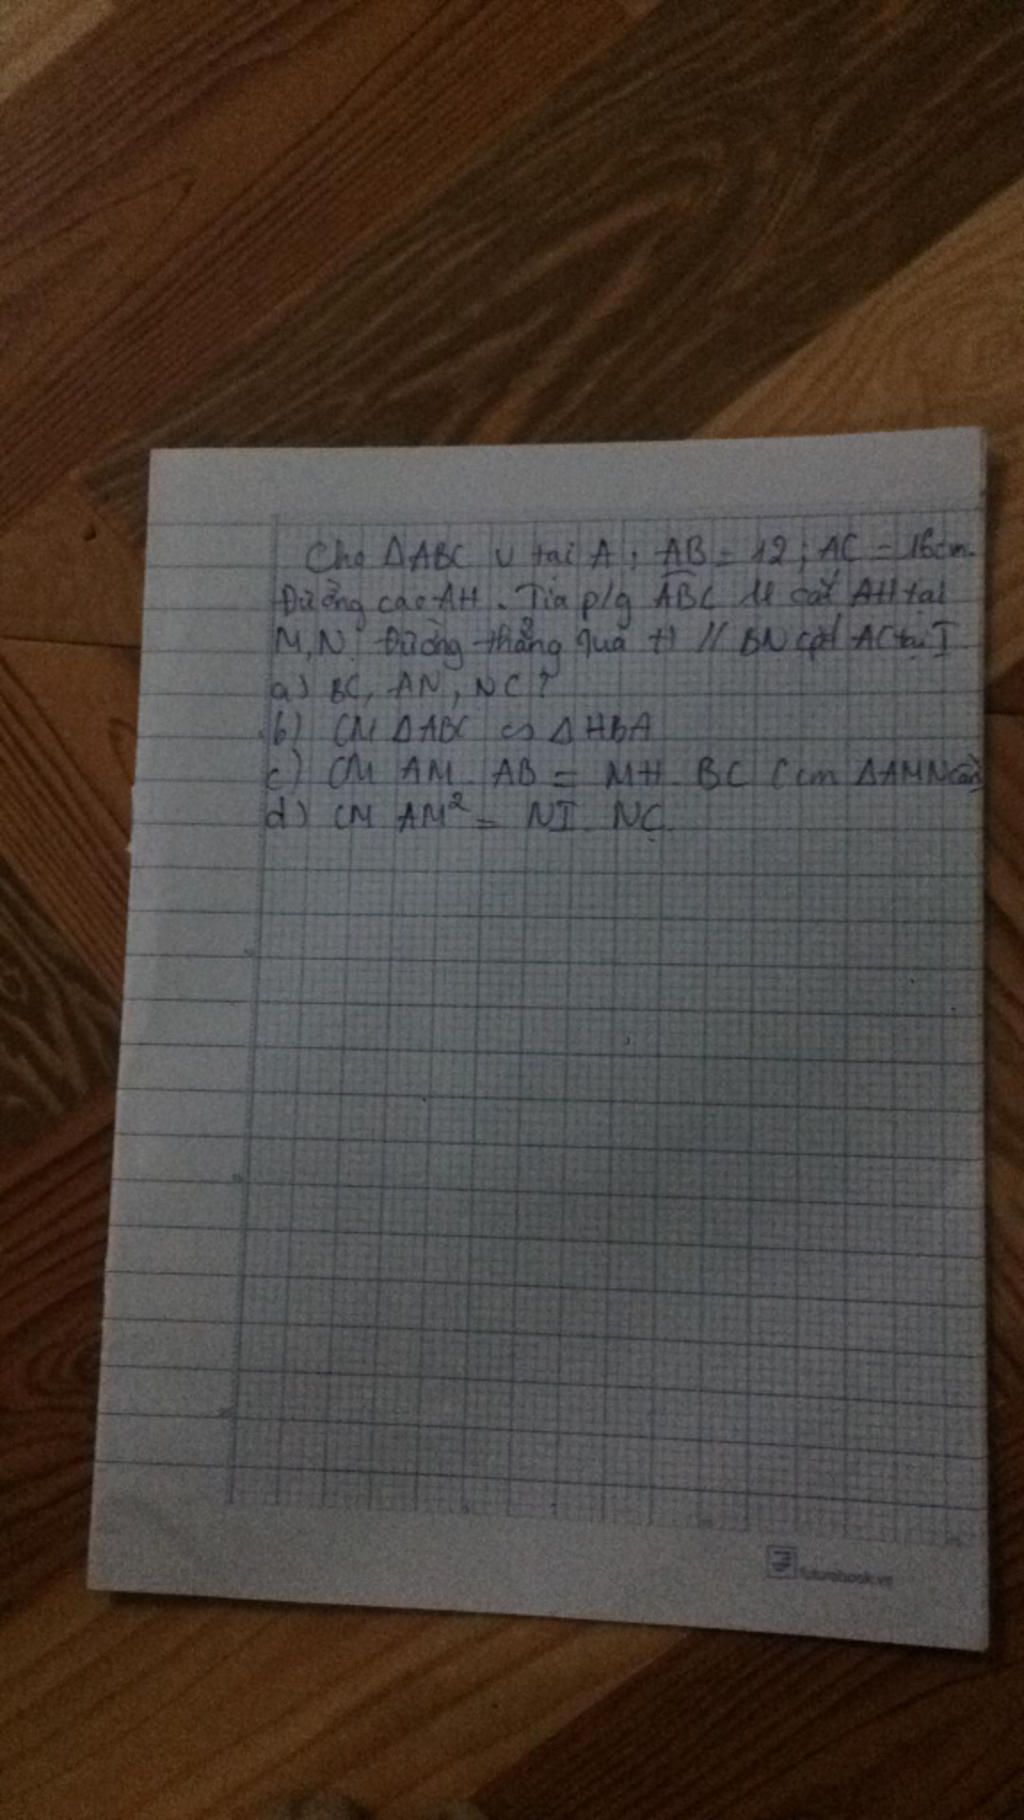 Cho ΔABC v tại A; AB = 12; AC = 16cm.
Đường cao AH. Tia p/g ABC cắt AH tại
M, N. Đường thẳng qua H // BN cắt AC tại I
a) BC, AN, NC?
b) CM ΔABC ∽ ΔHBA
c) CM AM . AB = MH . BC (cm ΔAMN cân)
d) CM AM² = NI . NC
futurebook.vn